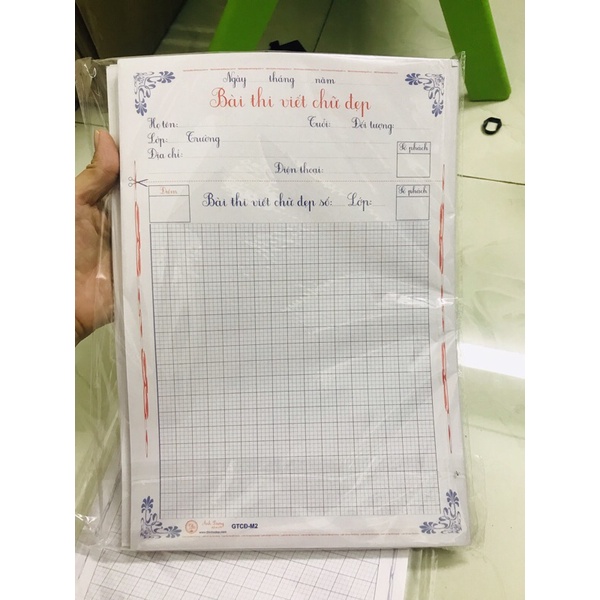 Ngày tháng năm
Bài thi viết chữ đẹp
Họ tên: Tuổi: Đối tượng:
Lớp: Trường
Địa chỉ: Số phách
Điện thoại:
Điểm Bài thi viết chữ đẹp số: Lớp: Số phách
GTCĐ-M2